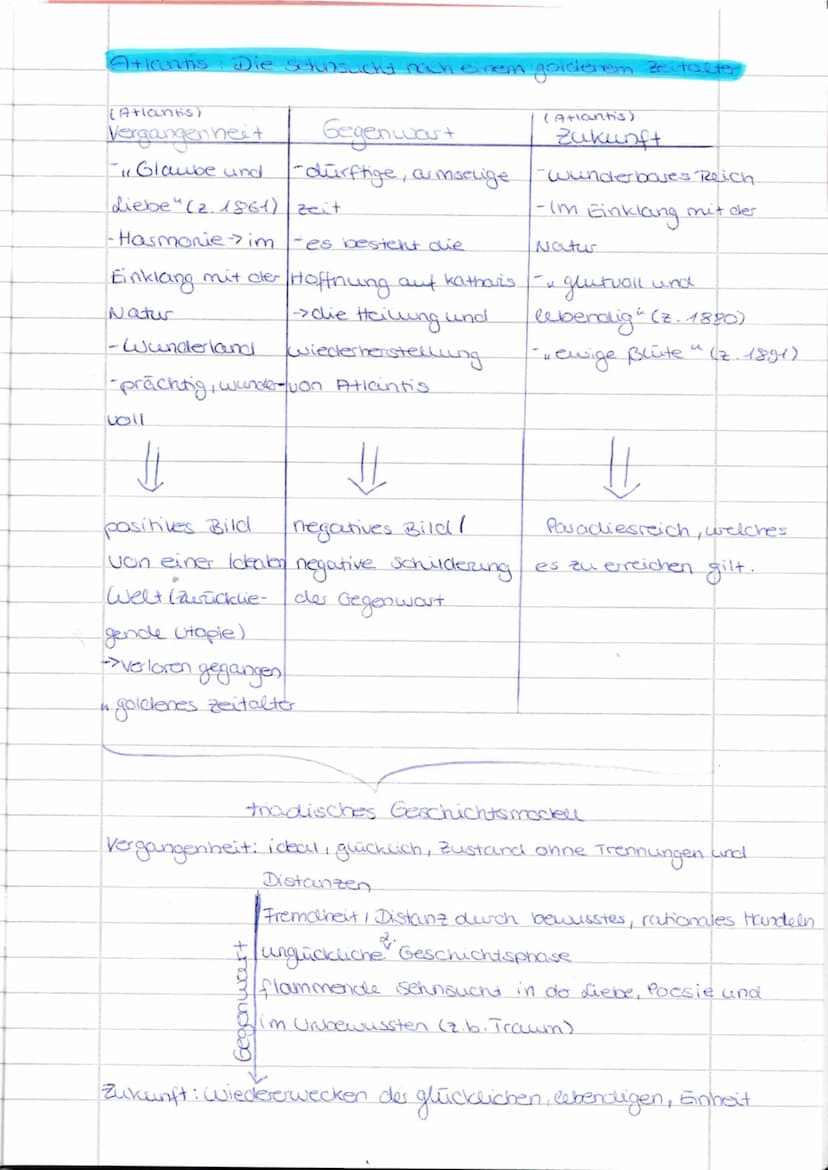 Atlantis. Die Sehnsucht nach einem goldenem Zeitalter
(Atlantis)
Vergangenheit
-„Glaube und
Liebe" (Z. 1861)
-Harmonie → im
Einklang mit der
Natur
-Wunderland
-prächtig, wunder-
voll
⇓
positives Bild
von einer Idealen
Welt (zurücklie-
gende Utopie)
→ verloren gegangen
„goldenes Zeitalter
Gegenwart
-dürftige, armselige
Zeit
-es besteht die
Hoffnung auf Katharis
→ die Heilung und
wiederherstellung
von Atlantis
⇓
negatives Bild /
negative Schilderung
der Gegenwart
(Atlantis)
Zukunft
-wunderbares Reich
-Im Einklang mit der
Natur
-„glutvoll und
lebendig" (Z. 1880)
-„ewige Blüte" (Z. 1891)
⇓
Paradiesreich, welches
es zu erreichen gilt.
triadisches Geschichtsmodell
Vergangenheit: ideal, glücklich, Zustand ohne Trennungen und
Distanzen
Gegenwart
Fremdheit / Distanz durch bewusstes, rationales Handeln
unglückliche 2. Geschichtsphase
flammende Sehnsucht in der Liebe, Poesie und
im Unbewussten (z.b. Traum)
Zukunft: Wiedererwecken der glücklichen, lebendigen, Einheit